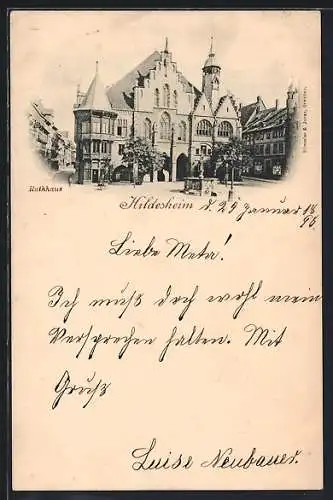 Rathhaus
Hildesheim d. 29 Januar 18
98.
Liebe Meta!
Ich muß doch wohl mein
Versprechen halten. Mit
Gruß
Luise Neubauer.